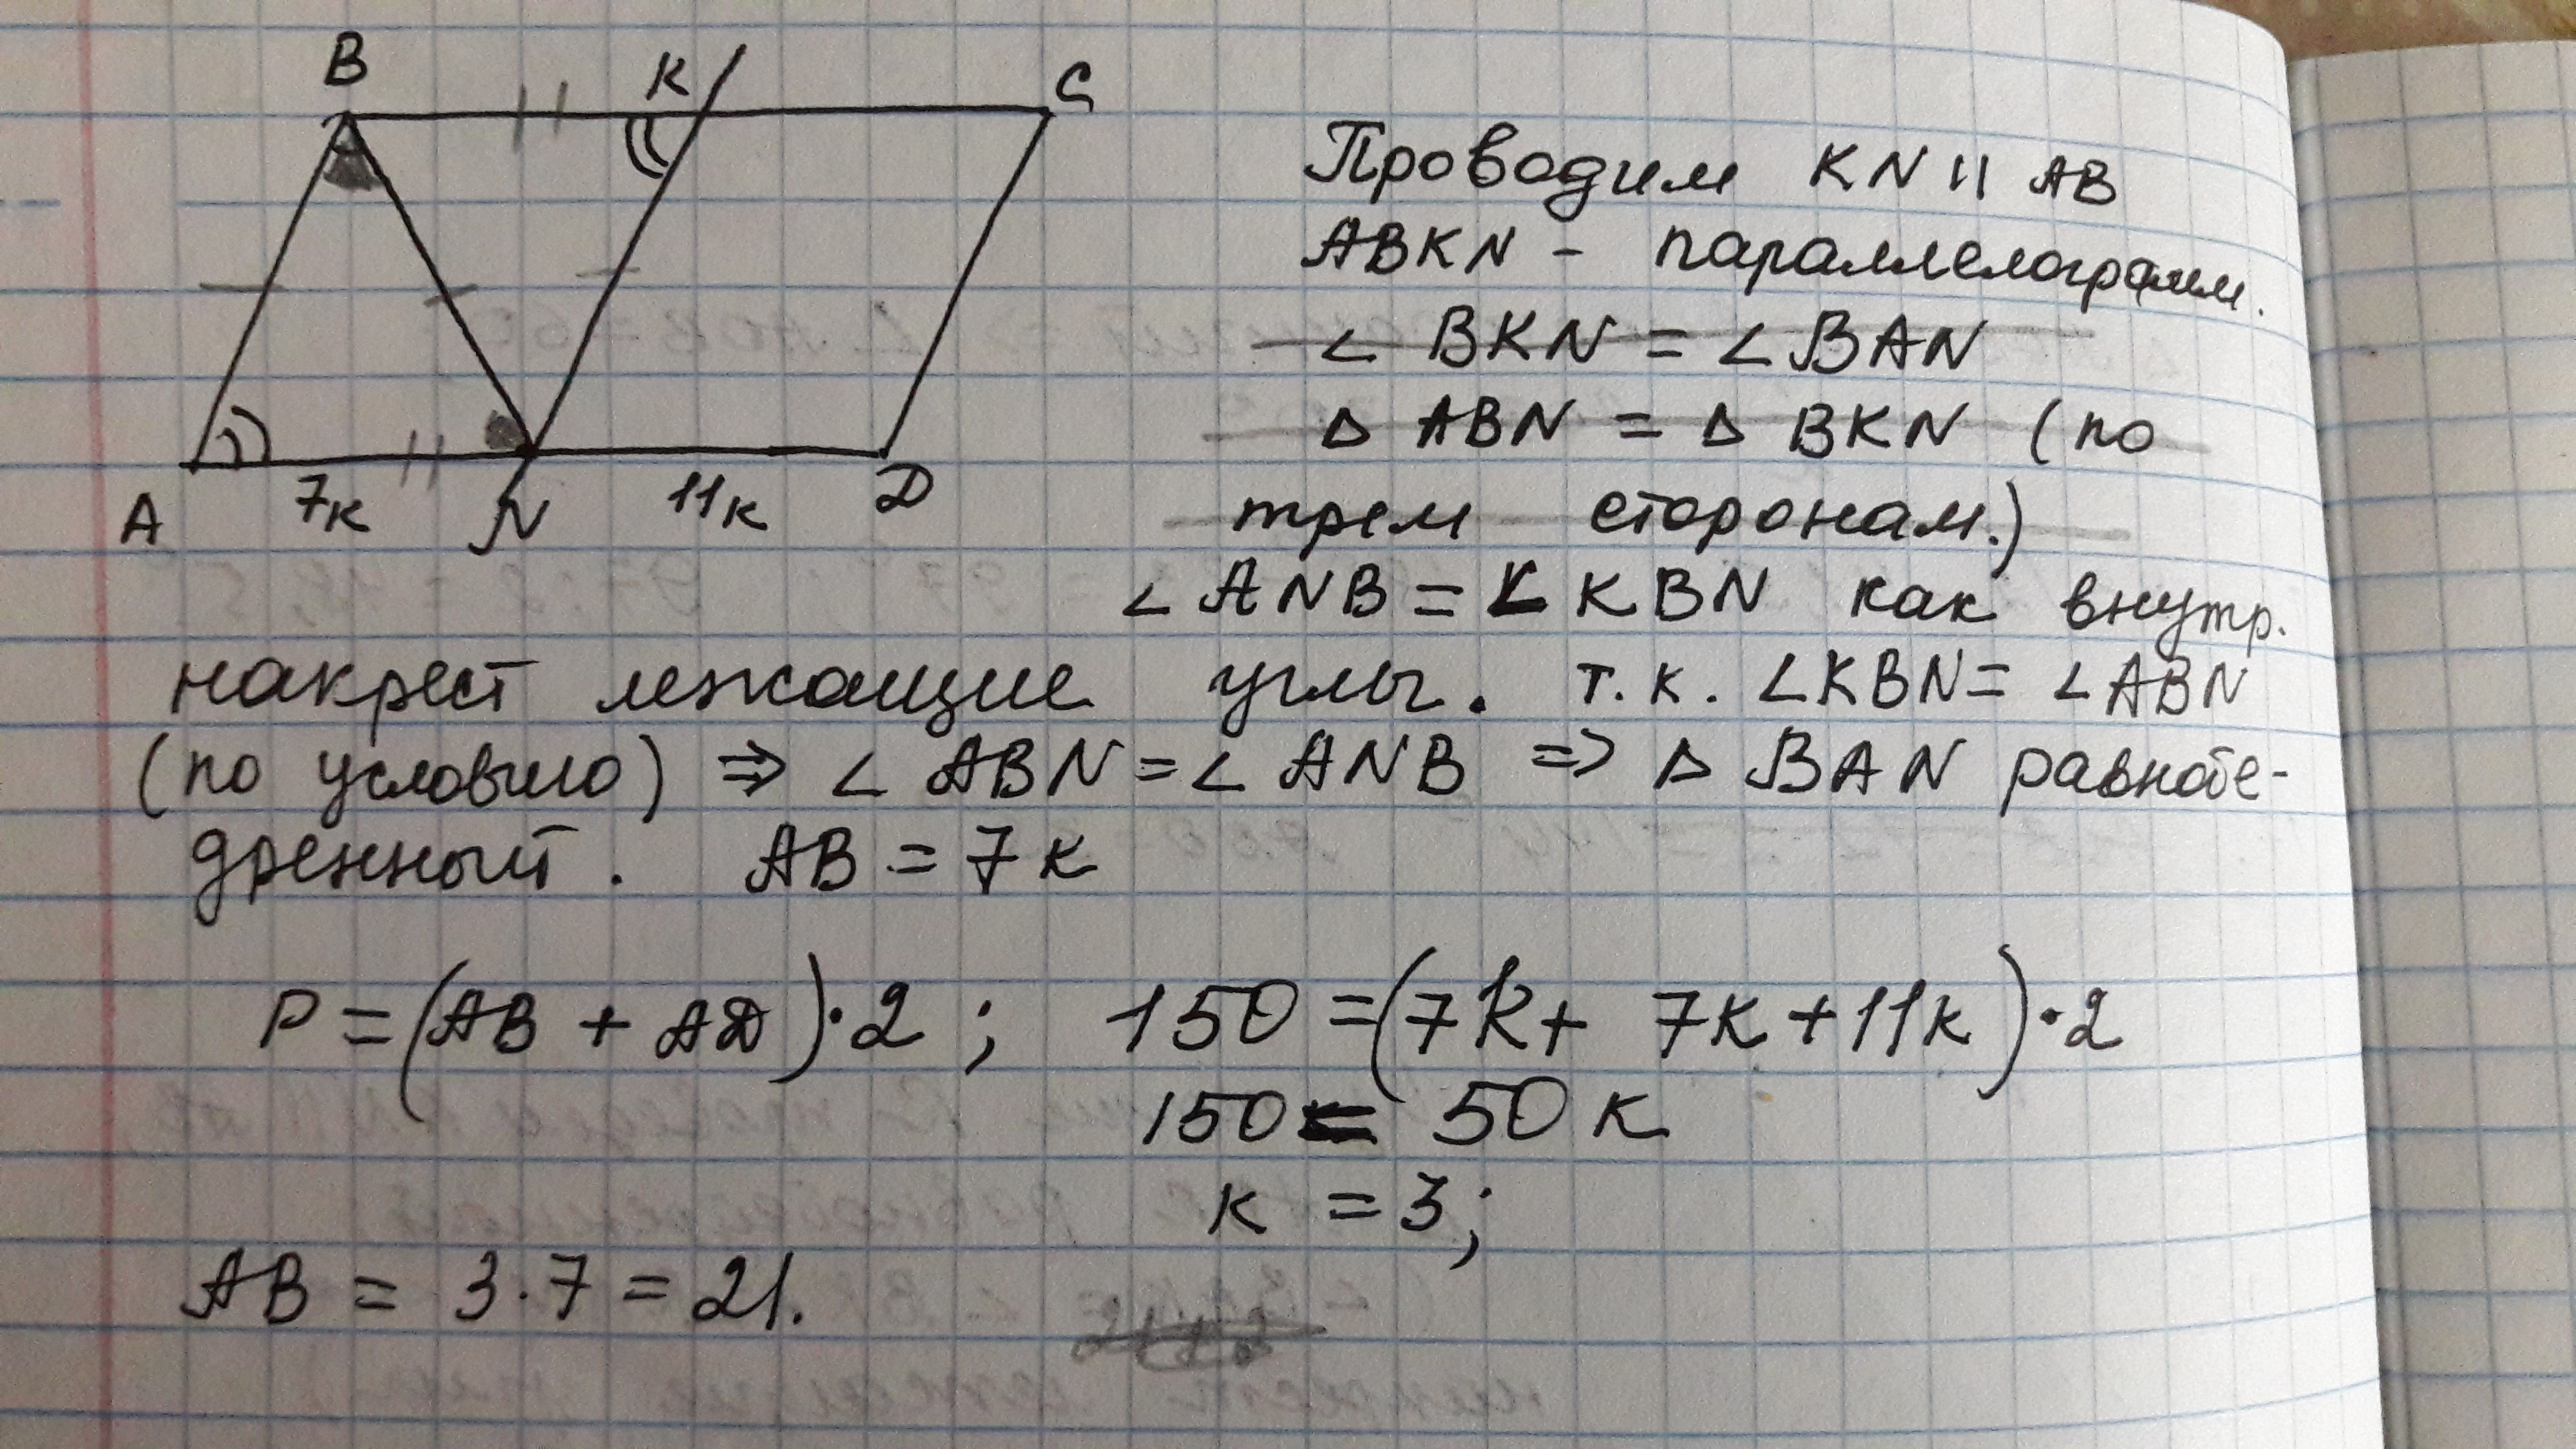 B K C
A 7к N 11к D
Проводим KN || AB
ABKN - параллелограмм.
∠ BKN = ∠ BAN
Δ ABN = Δ BKN (по
трем сторонам.)
∠ ANB = ∠ KBN как внутр.
накрест лежащие углы. т.к. ∠KBN = ∠ABN
(по условию) ⇒ ∠ ABN = ∠ ANB ⇒ Δ BAN равнобе-
дренный. AB = 7к
P = (AB + AD)·2 ; 150 = (7к + 7к + 11к)·2
150 = 50к
к = 3;
AB = 3·7 = 21.